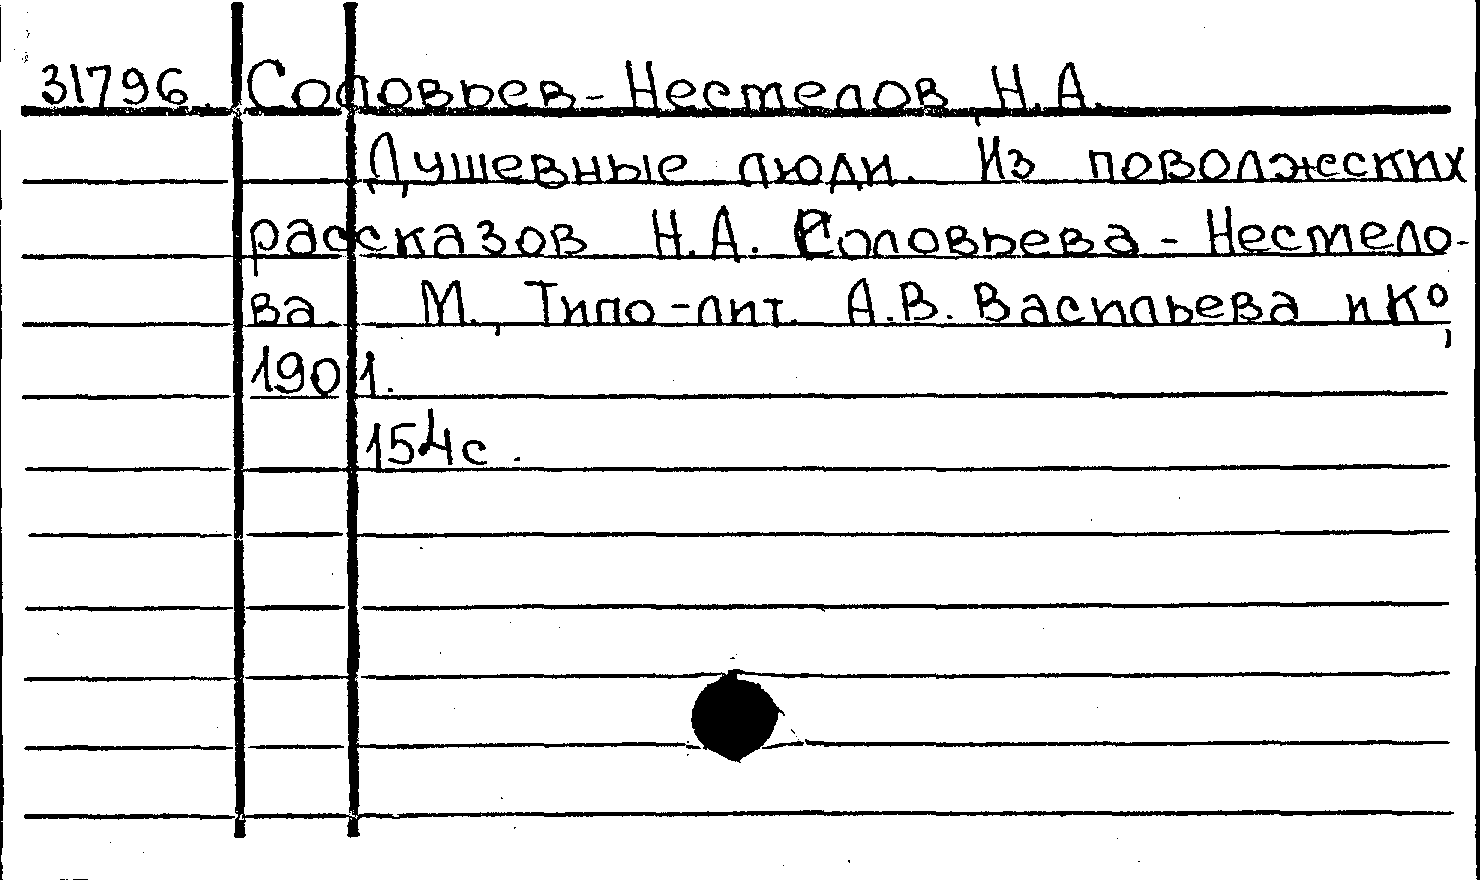 31796 Соловьев-Нестелов Н.А.
Душевные люди. Из поволжских
рассказов Н.А. Соловьева-Нестело-
ва. М., Типо-лит. А.В. Васильева и К°,
1901.
154с.